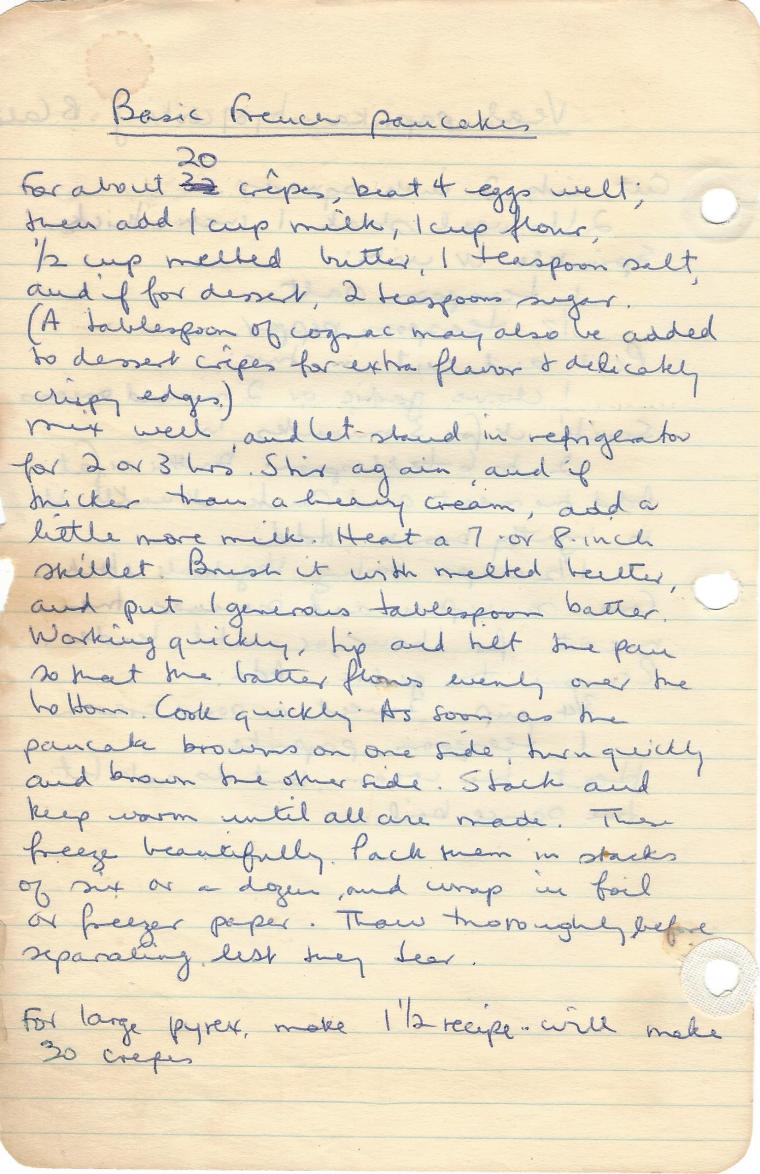 Basic French pancakes
20
For about 32 crêpes, beat 4 eggs well;
then add 1 cup milk, 1 cup flour,
1/2 cup melted butter, 1 teaspoon salt,
and if for dessert, 2 teaspoons sugar.
(A tablespoon of cognac may also be added
to dessert crêpes for extra flavor & delicately
crispy edges.)
Mix well, and let stand in refrigerator
for 2 or 3 hrs. Stir again, and if
thicker than a heavy cream, add a
little more milk. Heat a 7- or 8-inch
skillet. Brush it with melted butter,
and put 1 generous tablespoon batter.
Working quickly, tip and tilt the pan
so that the batter flows evenly over the
bottom. Cook quickly As soon as the
pancake browns on one side, turn quickly
and brown the other side. Stack and
keep warm until all are made. These
freeze beautifully. Pack them in stacks
of six or a dozen, and wrap in foil
or freezer paper. Thaw thoroughly before
separating, lest they tear.
For large pyrex, make 1 1/2 recipe - will make
30 crepes